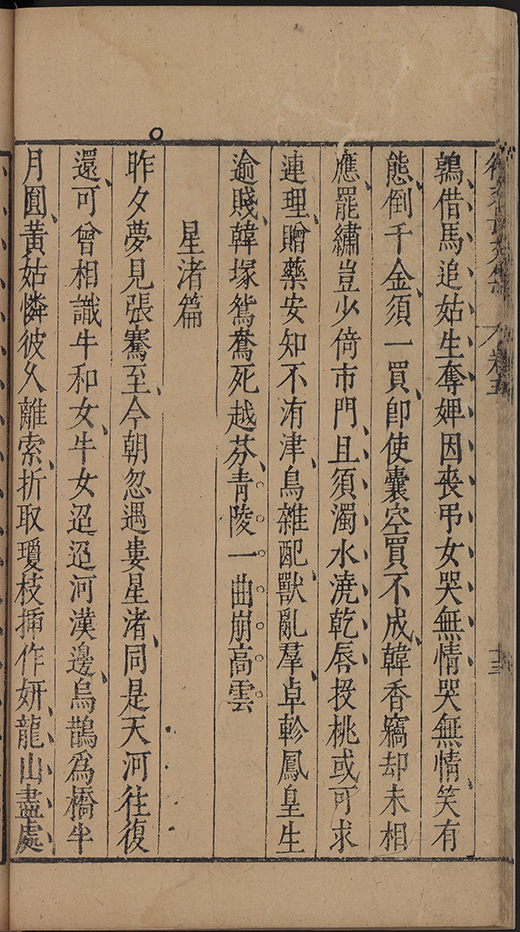 卷五
十三
鶉借馬追姑生奪婢因喪弔女哭無情哭無情笑有
態倒千金須一買卽使囊空買不成韓香竊却未相
應罷繡豈少倚市門且須濁水澆乾唇投桃或可求
連理贈藥安知不洧津鳥雜配獸亂羣卓軫鳳皇生
逾賤韓塚鴛鴦死越芬青陵一曲崩高雲
星渚篇
昨夕夢見張騫至今朝忽遇婁星渚同是天河往復
還可曾相識牛和女牛女迢迢河漢邊烏鵲爲橋半
月圓黃姑憐彼久離索折取瓊枝揷作妍龍山盡處